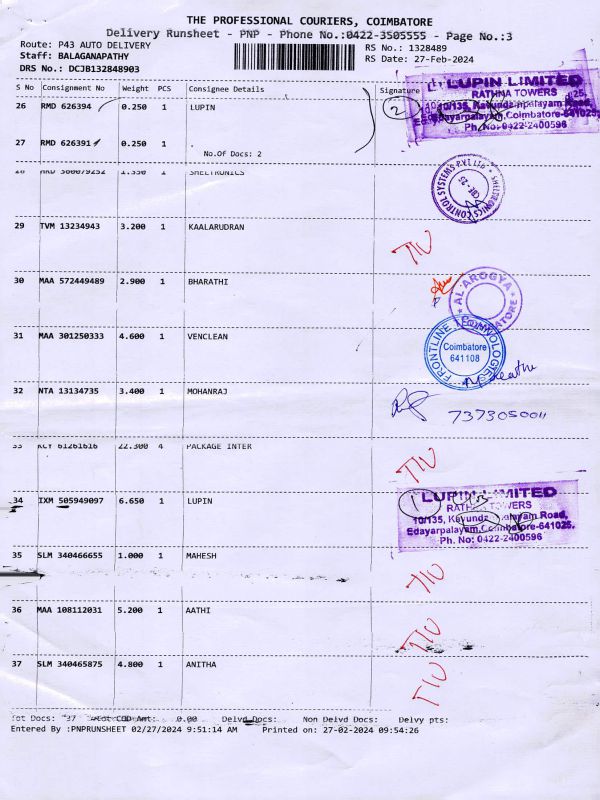 THE PROFESSIONAL COURIERS, COIMBATORE
Delivery Runsheet - PNP - Phone No.:0422-3505555 - Page No.:3
Route: P43 AUTO DELIVERY
RS No.: 1328489
Staff: BALAGANAPATHY
RS Date: 27-Feb-2024
DRS No.: DCJB132848903
S No Consignment No Weight PCS Consignee Details Signature
26 RMD 626394 0.250 1 LUPIN
2
LUPIN LIMITED
RATHNA TOWERS
10/135, Kavundampalayam Road,
Edayarpalayam, Coimbatore-641025
Ph. No: 0422-2400596
27 RMD 626391 0.250 1
No.Of Docs: 2
SHELTRONICS
SHELTRONICS CONTROL SYSTEMS P.V.T. LTD
29 TVM 13234943 3.200 1 KAALARUDRAN
30 MAA 572449489 2.900 1 BHARATHI
AL AROGYA
31 MAA 301250333 4.600 1 VENCLEAN
FRONTLINE TECHNOLOGIES
Coimbatore
641108
32 NTA 13134735 3.400 1 MOHANRAJ
7373050011
33 KCY 61261616 22.300 4 PACKAGE INTER
34 IXM 505949097 6.650 1 LUPIN
1
LUPIN LIMITED
RATHNA TOWERS
10/135, Kavundampalayam Road,
Edayarpalayam, Coimbatore-641025.
Ph. No: 0422-2400596
35 SLM 340466655 1.000 1 MAHESH
36 MAA 108112031 5.200 1 AATHI
37 SLM 340465875 4.800 1 ANITHA
Tot Docs: 37 Tot COD Amt: 0.00 Delvd Docs: Non Delvd Docs: Delvy pts:
Entered By :PNPRUNSHEET 02/27/2024 9:51:14 AM Printed on: 27-02-2024 09:54:26